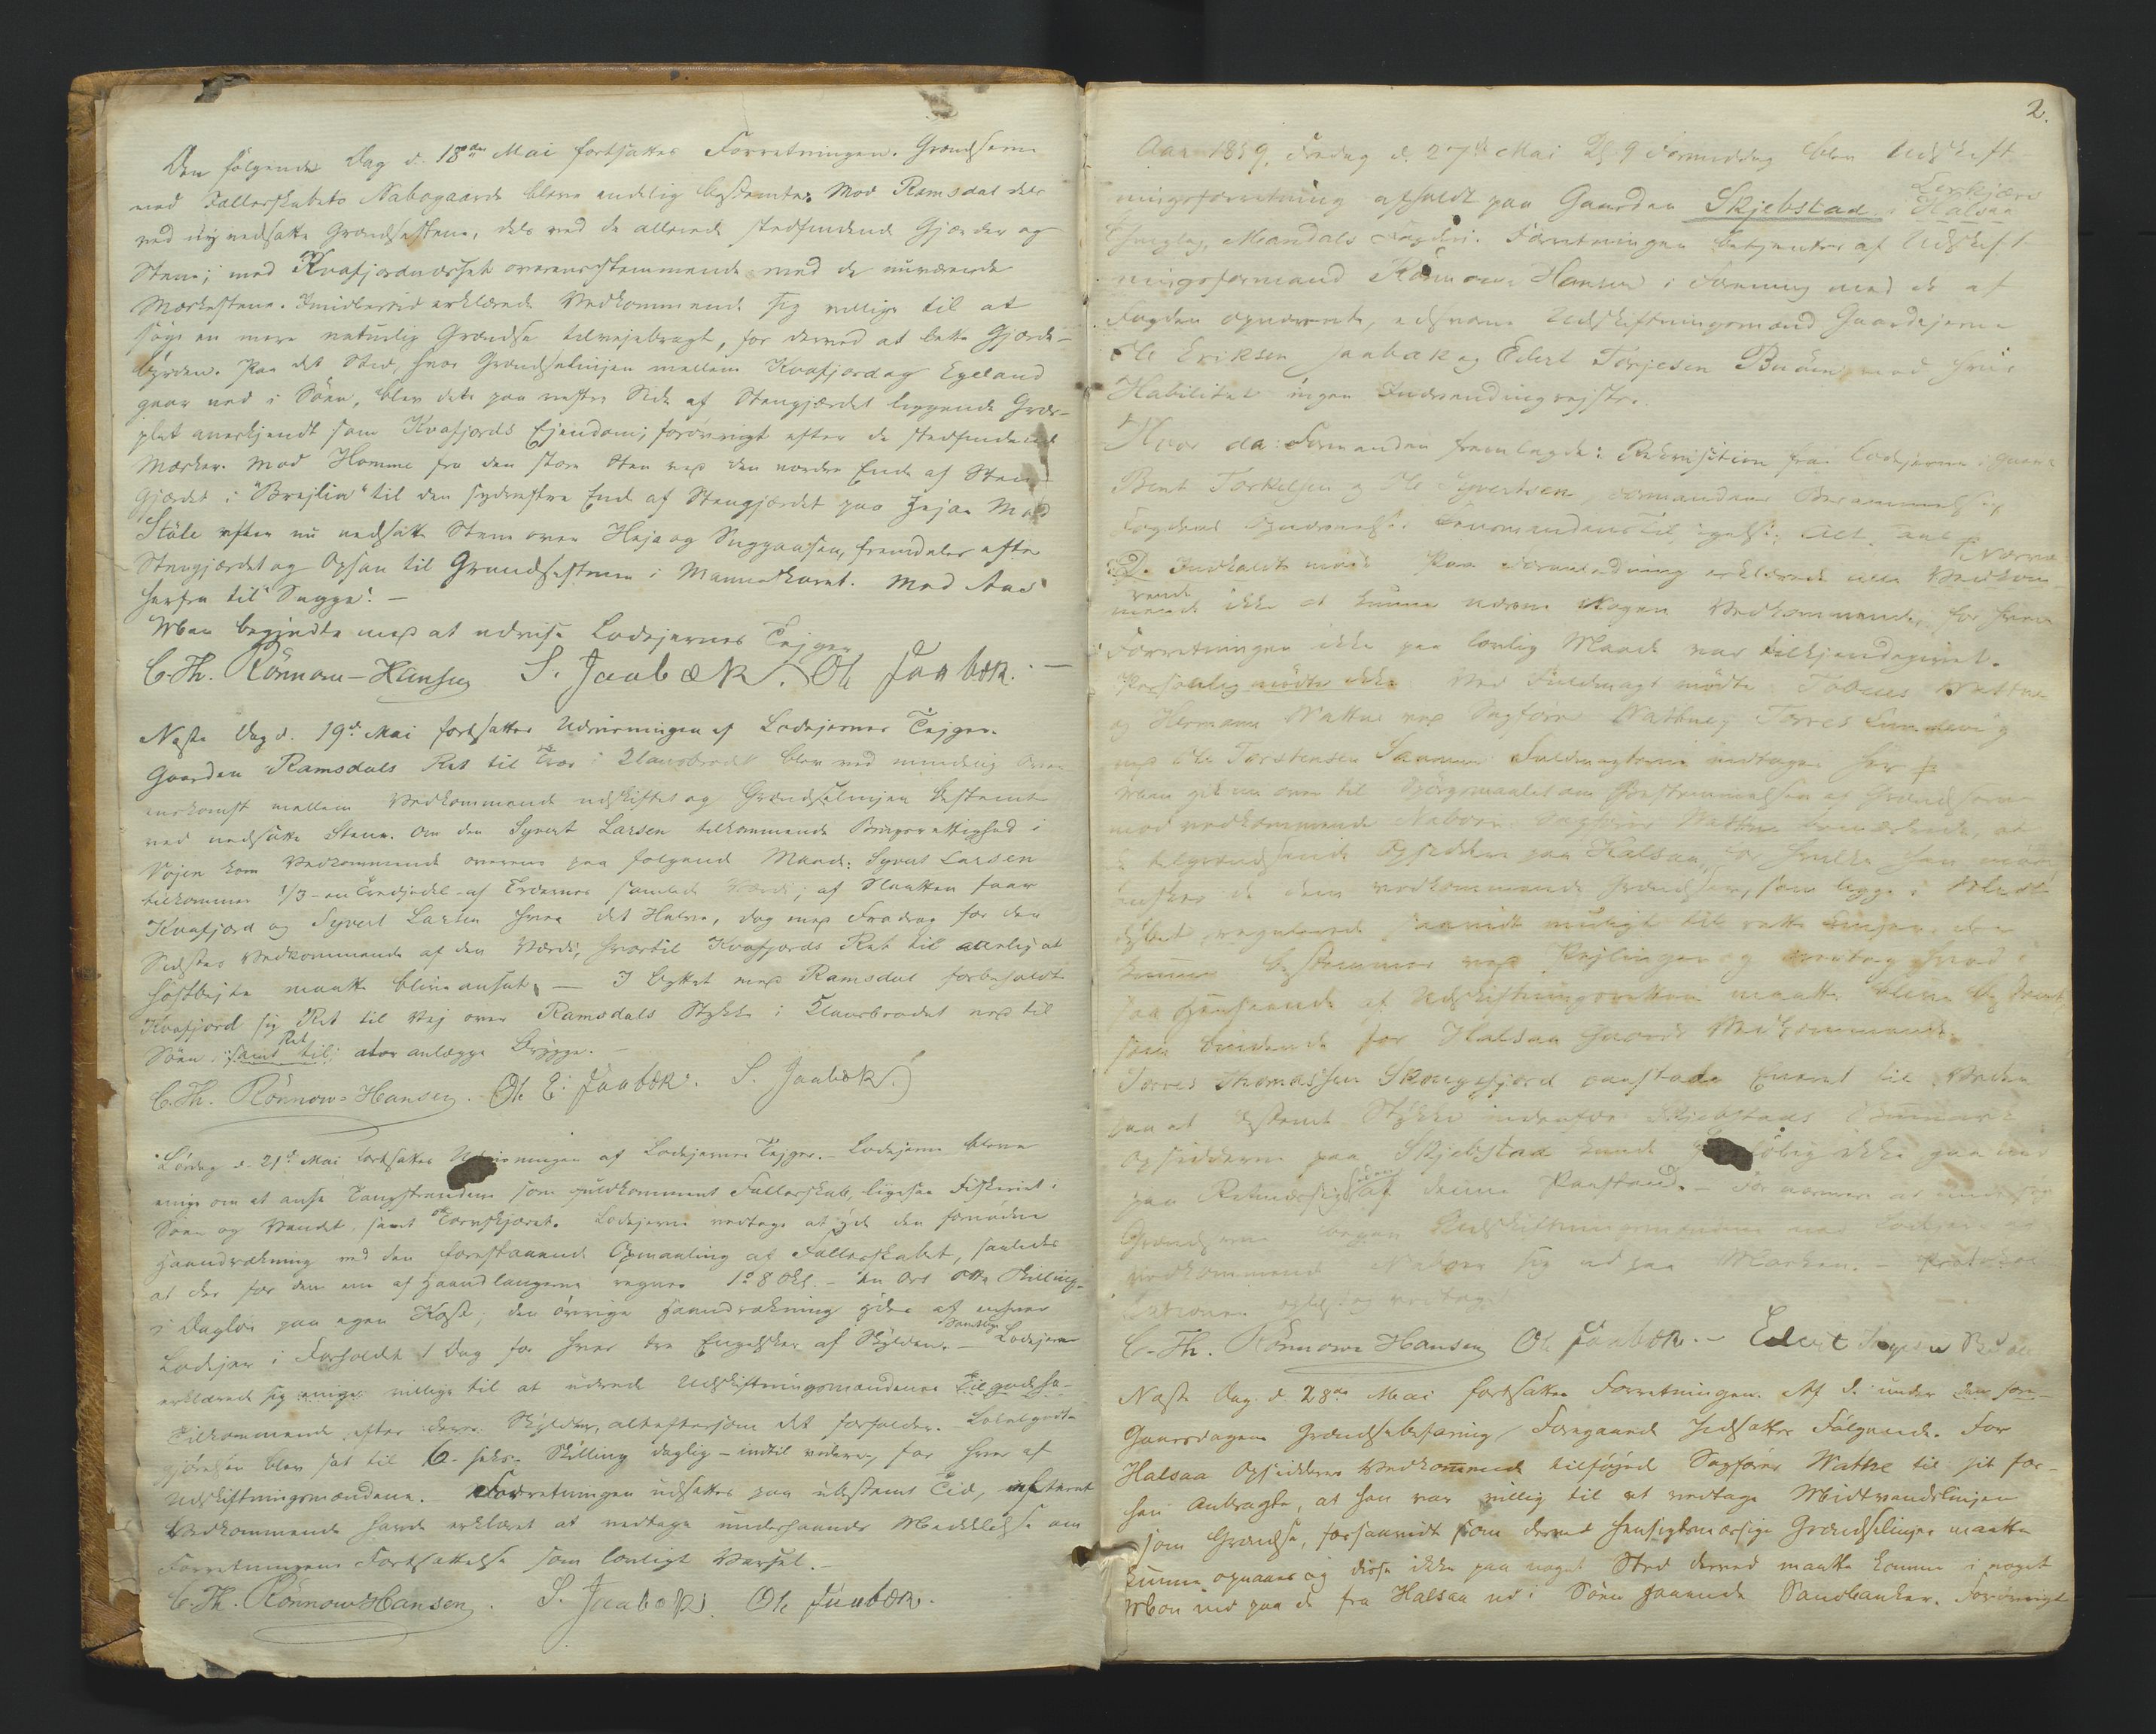 Den følgende Dag d. 18de Mai fortsattes Forretningen. Grændserne
med Fællesskabets Nabogaarde bleve endelig bestemte: Mod Ramsdal dels
ved ny nedsatte Grændsestene, dels ved de allerede stedfindende Gjærder og
Stene; mod Kvafjord overensstemmende med de nuværende
Mærkestene. Imidlertid erklærede Vedkommende sig villige til at
søge en mere naturlig Grændse tilvejebragt, for derved at lette Gjærde-
byrden. Paa det Sted, hvor Grændselinjen mellem Kvafjord og Egeland
gaar ned i Søen, blev dette paa vestre Side af Stengjærdet liggende Græs-
plet anerkjendt som Kvafjords Ejendom; forøvrigt efter de stedfindende
Mærker. Mod Homme fra den store Sten ved den nordre Ende af Sten-
gjærdet i "Brejlia" til den sydvestre Ende af Stengjærdet paa Hejen. Mod
Støle efter nu nedsatte Stene over Heja og Suggaasen, fremdeles efter
Stengjærdet og Opsan til Grændsestenen i Manneskaret. Mod Aas
herfra til "Sugge". —
Man begyndte med at udvise Lodejernes Tejger
C. Th. Rönnow-Hansen S. Jaabæk. Ole Jaabæk. —
Næste Dag d. 19de Mai fortsattes Udvisningen af Lodejernes Tejger.
Gaarden Ramsdals Ret til i Klausbrodet blev ved mindelig Over-
enskomst mellem Vedkommende udskiftet og Grændselinjen bestemte
ved nedsatte Stene. Om den Syvert Larsen tilkommende Brugsrettighed i
Vejen kom Vedkommende overens paa følgende Maade: Syvert Larsen
tilkommer 1/3 - en Trediedel - af Træernes samlede Værdi; af Slaatten faar
Kvafjord og Syvert Larsen hver det Halve, dog med Fradrag for den
Sidstes Vedkommende af den Værdi, hvortil Kvafjords Ret til at
høstbejte maatte blive ansat. — I Byttet med Ramsdal forbeholdt
Kvafjord sig Ret til Vej over Ramsdals Stykke i Klausbrodet ned til
Søen samt Ret til at anlægge Brygge. —
C. Th. Rönnow-Hansen. Ole E. Jaabæk. S. Jaabæk.
Lørdag d. 21de Mai fortsattes Udvisningen af Lodejernes Tejger. — Lodejerne bleve
enige om at anse Tangstrandene som fuldkomment Fællesskab, ligesaa Fiskeriet i
Søen og Vandet, samt Lodejerne vedtoge at yde den fornødne
Haandrækning ved den forestaaende Opmaaling af Fællesskabet, saaledes
at der for den ene af Haandlangerne regnes 1 o 8 skl. – en Ort otte Skilling –
i Dagløn paa egen Kost; den øvrige Haandrækning ydes af enhver
Lodejer i Forholdet 1 Dag for hver tre Engelsker af Skylden. — Samtlige Lodejere
erklærede sig enige villige til at udrede Udskiftningsmændenes Tilgodeha-
Tilkommende efter deres Skylder, alt eftersom det forfalder.
gjørelsen blev sat til 6 – seks – Skilling daglig – indtil videre, for hver af
Udskiftningsmændene. Forretningen udsattes paa ubestemt Tid, efterat
Vedkommende havde erklæret at vedtage underhaands Meddelelse om
Forretningens Fortsættelse som lovligt Varsel. —
C. Th. Rönnow-Hansen. S. Jaabæk. Ole Jaabæk.
2.
Aar 1859, Fredag d. 27de Mai Kl. 9 Formiddag blev Udskift
ningsforretning afholdt paa Gaarden Skjebstad i Halsaa
Thinglag, Mandals Fogderi. Forretningen betjentes af Udskift
ningsformand Rönnow Hansen i Forening med de af
Fogden opnævnte, edsvorne Udskiftningsmænd Gaardejerne
Ole Eriksen Jaabæk og Edert Torjesen Buöen, mod hvis
Habilitet ingen Indvending rejstes.
Hvor da: Formanden fremlagde: Rekvisition fra Lodejerne
Bent Torkelsen og Ole Syvertsen, Formandens Berammelse,
Fogdens Opnævnelse,
Indkaldte Paa Foranledning erklærede alle Vedkom-
mende ikke at kunne nævne Nogen Vedkommende, for hvem
Forretningen ikke paa lovlig Maade var tilkjendegivet.
Personlig mødte ikke Ved Fuldmagt mødte Tobias Wattne
og Hermann Wattne ved Sagfører Wattne; Torres Lundevig
ved Ole Torstensen Saanum. Fuldmagterne indtages her
Man gik nu over til Spørgsmaalet om Bestemmelsen af Grændserne
mod vedkommende Naboer. Sagfører Wattne bemærkede, at
de tilgrændsende Opsiddere paa Halsaa, for hvilke han møder
ønsker de dem vedkommende Grændser, som ligge i
dybet regulerede saavidt muligt til rette Linjer, der
kunne bestemmes ved Pejlinger og vedtog hvad i
saa Henseende af Udskiftningsretten maatte blive bestemt
som bindende for Halsaa Gaards Vedkommende.
Torres Thomassen Skougsfjord paastod Eneret til Veden
paa et bestemt Stykke indenfor Skjebstads
Opsidderne paa Skjebstad kunde foreløbig ikke gaa ind
paa Retmæssigheden af denne Paastand. For nærmere at undersøge
Grændserne begav Udskiftningsmændene med Lodejere og
vedkommende Naboer sig ud paa Marken. –
C. Th. Rönnow Hansen Ole Jaabæk. – Edert Torjesen Buöen
Næste Dag d. 28de Mai fortsattes Forretningen. Af d. under den fore-
Gaarsdagens Grændsebefaring Foregaaede Indsattes Følgende. For
Halsaa Opsidderes Vedkommende tilføjede Sagfører Wattne til sit for-
hen Anbragte, at han var villig til at vedtage Midtvandslinjen
som Grændse, forsaavidt som derved hensigtsmæssige Grændselinjer maatte
kunne opnaaes og disse ikke paa noget Sted derved maatte komme i noget
Mon ind paa de fra Halsaa ud i Søen gaaende Sandbanker. Forøvrigt